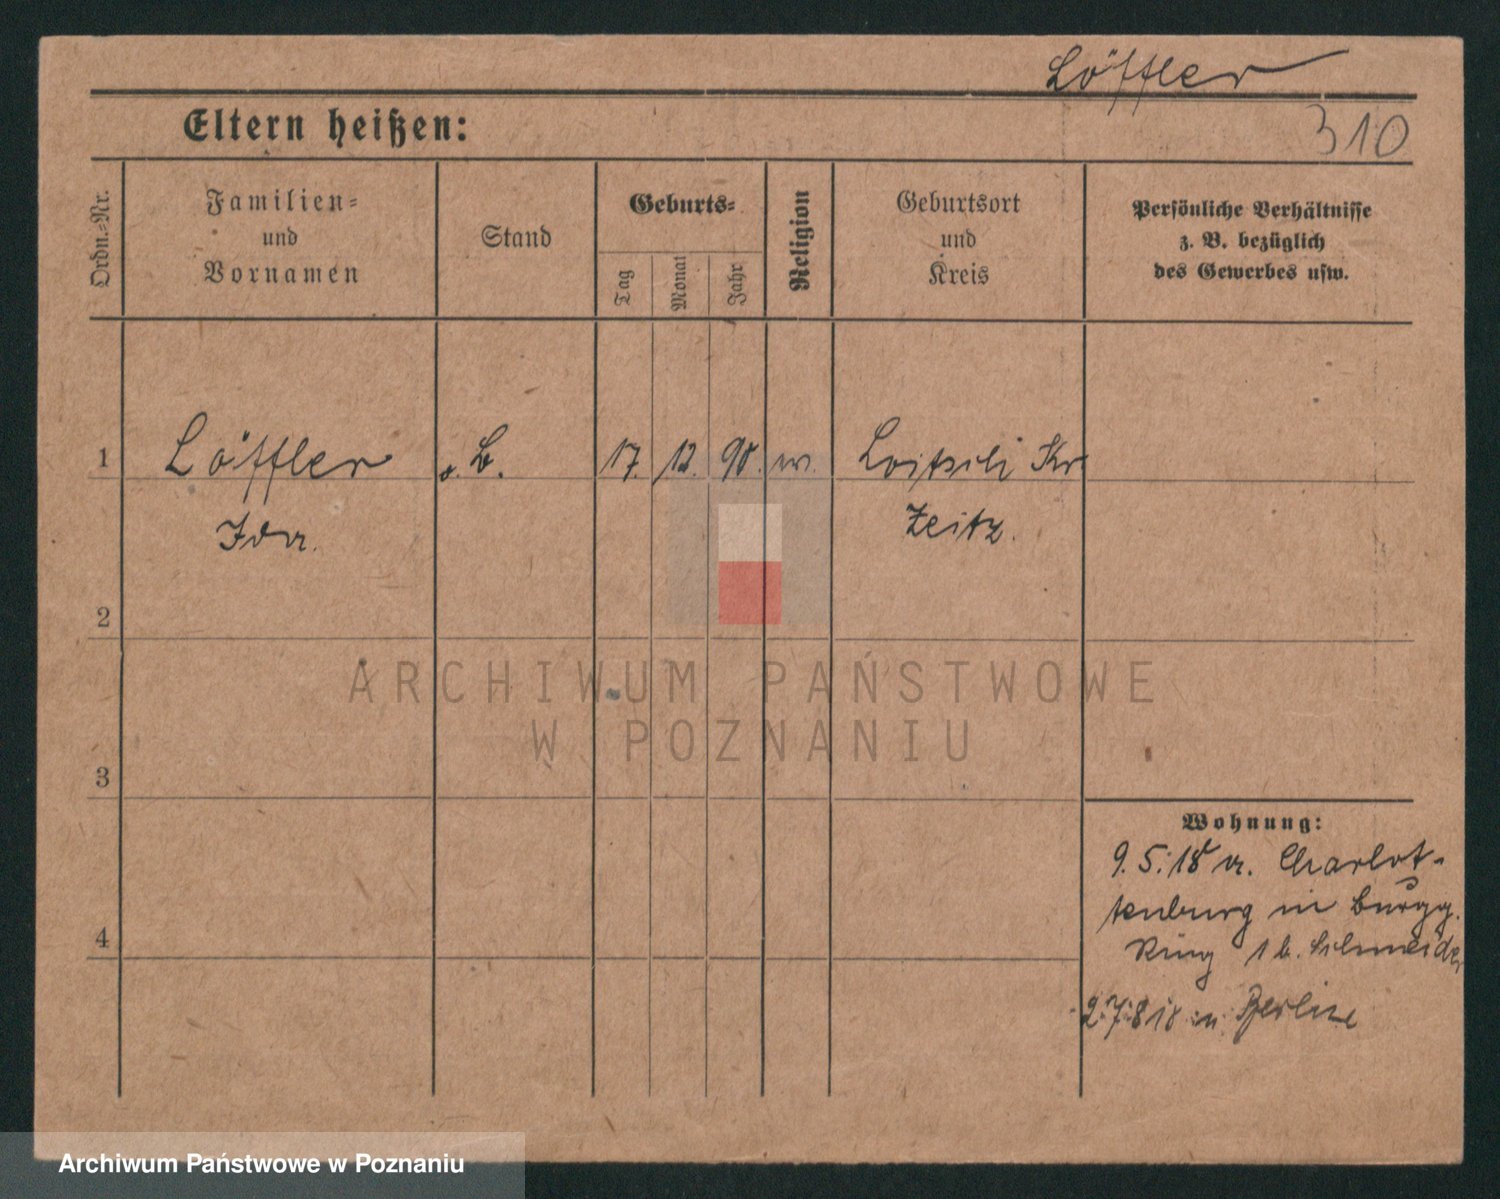 Löffler
Eltern heißen:
310
Ordn.-Nr.
Familien-
und
Vornamen
Stand
Geburts-
Tag
Monat
Jahr
Religion
Geburtsort
und
Kreis
Persönliche Verhältnisse
z. B. bezüglich
des Gewerbes usw.
1
Löffler
o. B.
17.
12.
90.
w.
Kr.
Ida.
Zeitz.
2
ARCHIWUM PAŃSTWOWE
W POZNANIU
3
Wohnung:
9.5.18 v. Charlot-
tenburg in Burgg.
Ring 1 b. Schneider
2.7.8 18 n. Berlin
4
Archiwum Państwowe w Poznaniu